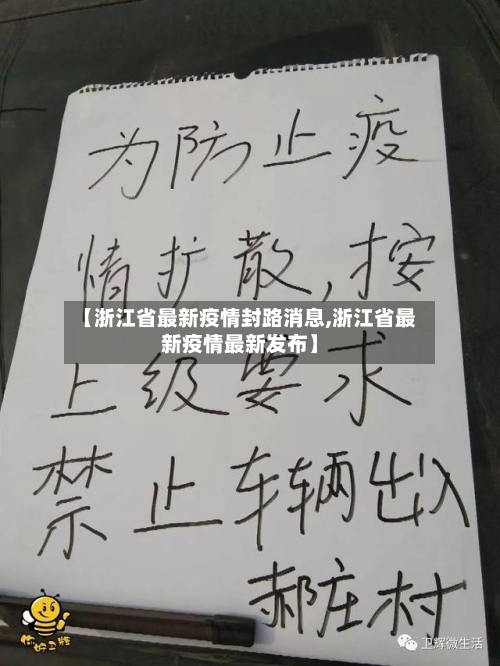 为防止疫
情扩散,按
【浙江省最新疫情封路消息,浙江省最
新疫情最新发布】
上级要求
禁止车辆出入
郝庄村
你好卫辉
卫辉微生活